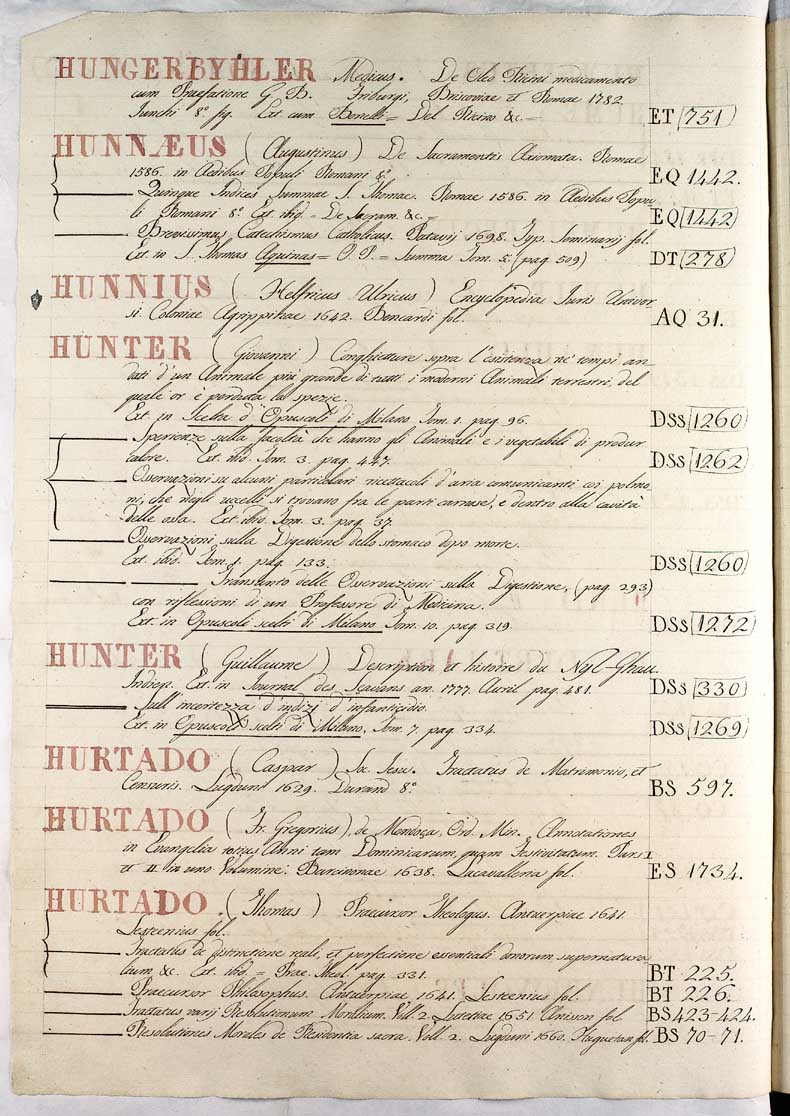 HUNGERBYHLER Medicus. De Oleo Ricini medicamento
cum Praefatione G. B. Friburgi, Briscoviae et Romae 1782.
Junchi 8.° fig. Ext. cum Bonelli = Del Ricino &c. = ET 751
HUNNÆUS (Augustinus) De Sacramentis Axiomata. Romae
1586. in Aedibus Populi Romani 8.° EQ 1442.
Quinque Indices Summae S. Thomae. Romae 1586. in Aedibus Popu
li Romani 8.° Ext. ibid. = De Sacram. &c. = EQ 1442
Brevissimus Catechismus Catholicus. Patavij 1698. Typ. Seminarij fol.
Ext. in S. Thomas Aquinas = O. P. = Summa Tom. 5. (pag. 509) DT 278
HUNNIUS (Helfricus Ulricus) Encyclopedia Iuris Univer
si. Coloniae Agrippinae 1642. Bencardi fol. AQ 31.
HUNTER (Giovanni) Conghietture sopra l'esistenza ne' tempi an
dati d'un Animale più grande di tutti i moderni Animali terrestri, del
quale or è perduta la spezie.
Ext. in Scelta d'Opuscoli di Milano Tom. 1. pag. 96. DSs 1260
Sperienze sulla facoltà che hanno gli Animali e i vegetabili di produr
calore. Ext. ibid. Tom. 3. pag. 447. DSs 1262
Osservazioni su alcuni particolari ricettacoli d'aria comunicanti coi polmo
ni, che negli uccelli si trovano fra le parti carnose, e dentro alla cavità
delle ossa. Ext. ibid. Tom. 3. pag. 37.
Osservazioni sulla Digestione dello stomaco dopo morte.
Ext. ibid. Tom. 1. pag. 133. DSs 1260
Transunto delle Osservazioni sulla Digestione, (pag. 293)
con riflessioni di un Professore di Medicina.
Ext. in Opuscoli scelti di Milano Tom. 10. pag. 319. DSs 1272
HUNTER (Guillaume) Description et histoire du Nyl-Ghau.
Indien. Ext. in Journal des Sçavans an. 1777. Avril pag. 481. DSs 330
Sull'incertezza d'indizi d'infanticidio.
Ext. in Opuscoli scelti di Milano, Tom. 7. pag. 334. DSs 1269
HURTADO (Caspar) Soc. Iesu. Tractatus de Matrimonio, et
Censuris. Lugduni 1629. Durand 8.° BS 597.
HURTADO (Fr. Gregorius), de Mendoça, Ord. Min. Annotationes
in Evangelia totius Anni tam Dominicarum, quam Festivitatum. Pars I
et II in uno Volumine: Barcinonae 1638. Lacavalleria fol. ES 1734.
HURTADO. (Thomas) Praecursor Theologus. Antuerpiae 1641.
Lesteenius fol.
Tractatus de distinctione reali, et perfectione essentiali donorum supernatura
lium &c. Ext. ibid. = Prae. Theol. pag. 331. BT 225.
Praecursor Philosophus. Antuerpiae 1641. Lesteenius fol. BT 226.
Tractatus varij Resolutionum Moralium. Voll. 2. Lutetiae 1651. Anisson fol. BS 423-424.
Resolutiones Morales de Residentia sacra. Voll. 2. Lugduni 1660. Huguetan fol. BS 70-71.